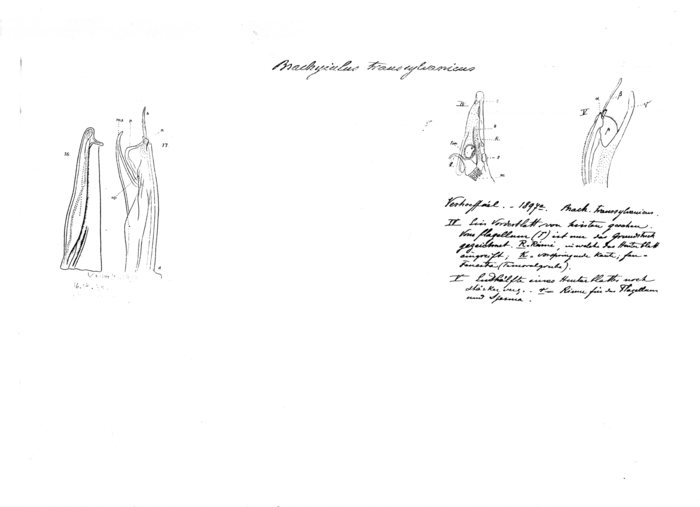 Brachyiulus transsylvanicus
16.
17.
IV
V
Verhoeff 1897 Brach. transsylvanicus.
IV Ein Vorderblatt von hinten gesehen.
Vom flagellum (F) ist nur das Grundstück
gezeichnet. R. Rinne, in welche das Hinterblatt
eingreift; K = vorspringende Kante; fen =
Fenestra (Femoralgrube).
V Endhälfte eines Hinterblattes noch
stärker verg. r = Rinne für das Flagellum
und Sperma.